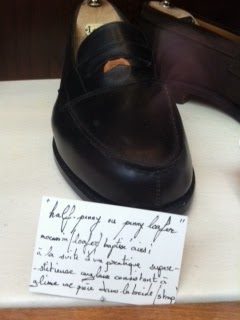 "half-penny ou penny loafer"
mocassin (loafer) baptisé ainsi
à la suite d'une pratique super-
stitieuse anglaise consistant à
glisser une pièce dans la bride (strap)